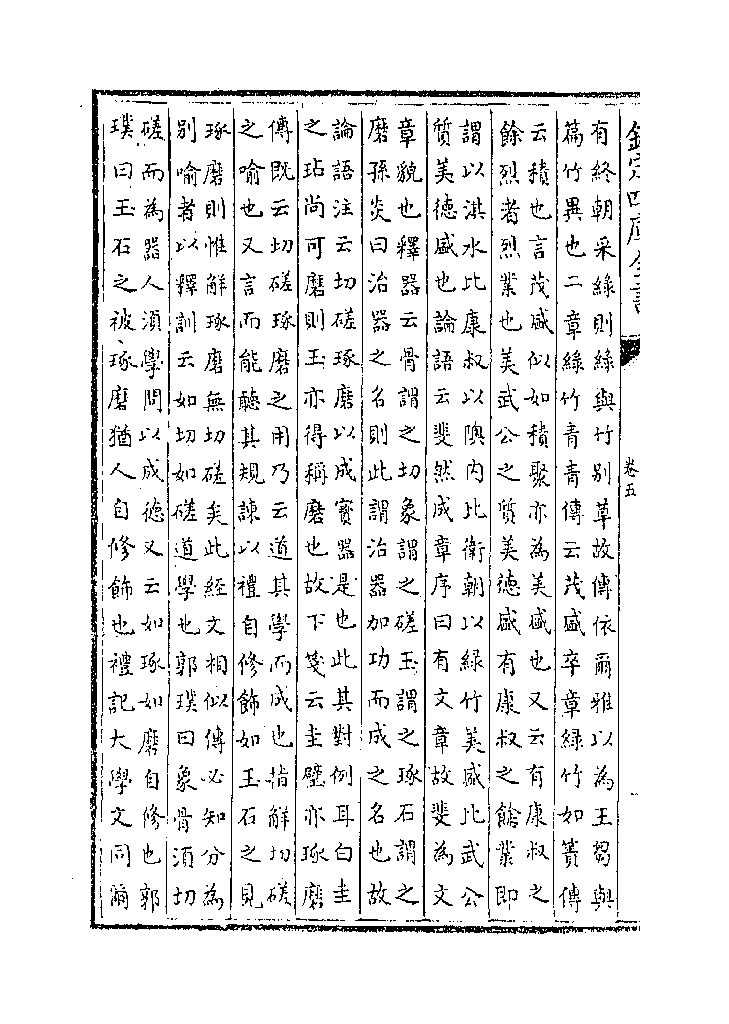 欽定四庫全書
卷五
有終朝采綠則綠與竹別草故傳依爾雅以為王芻與
篇竹異也二章綠竹青青傳云茂盛卒章緑竹如簀傳
云積也言茂盛似如積聚亦為美盛也又云有康叔之
餘烈者烈業也美武公之質美徳盛有康叔之餘業即
謂以淇水比康叔以隩内比衛朝以綠竹美盛比武公
質美徳盛也論語云斐然成章序曰有文章故斐為文
章貌也釋器云骨謂之切象謂之磋玉謂之琢石謂之
磨孫炎曰治器之名則此謂治器加功而成之名也故
論語注云切磋琢磨以成寳器是也此其對例耳白圭
之玷尚可磨則玉亦得稱磨也故下箋云圭璧亦琢磨
傳既云切磋琢磨之用乃云道其學而成也指解切磋
之喻也又言而能聽其規諫以禮自修飾如玉石之見
琢磨則惟解琢磨無切磋矣此經文相似傳必知分為
別喻者以釋訓云如切如磋道學也郭璞曰象骨須切
磋而為器人須學問以成徳又云如琢如磨自修也郭
璞曰玉石之被琢磨猶人自修飾也禮記大學文同爾